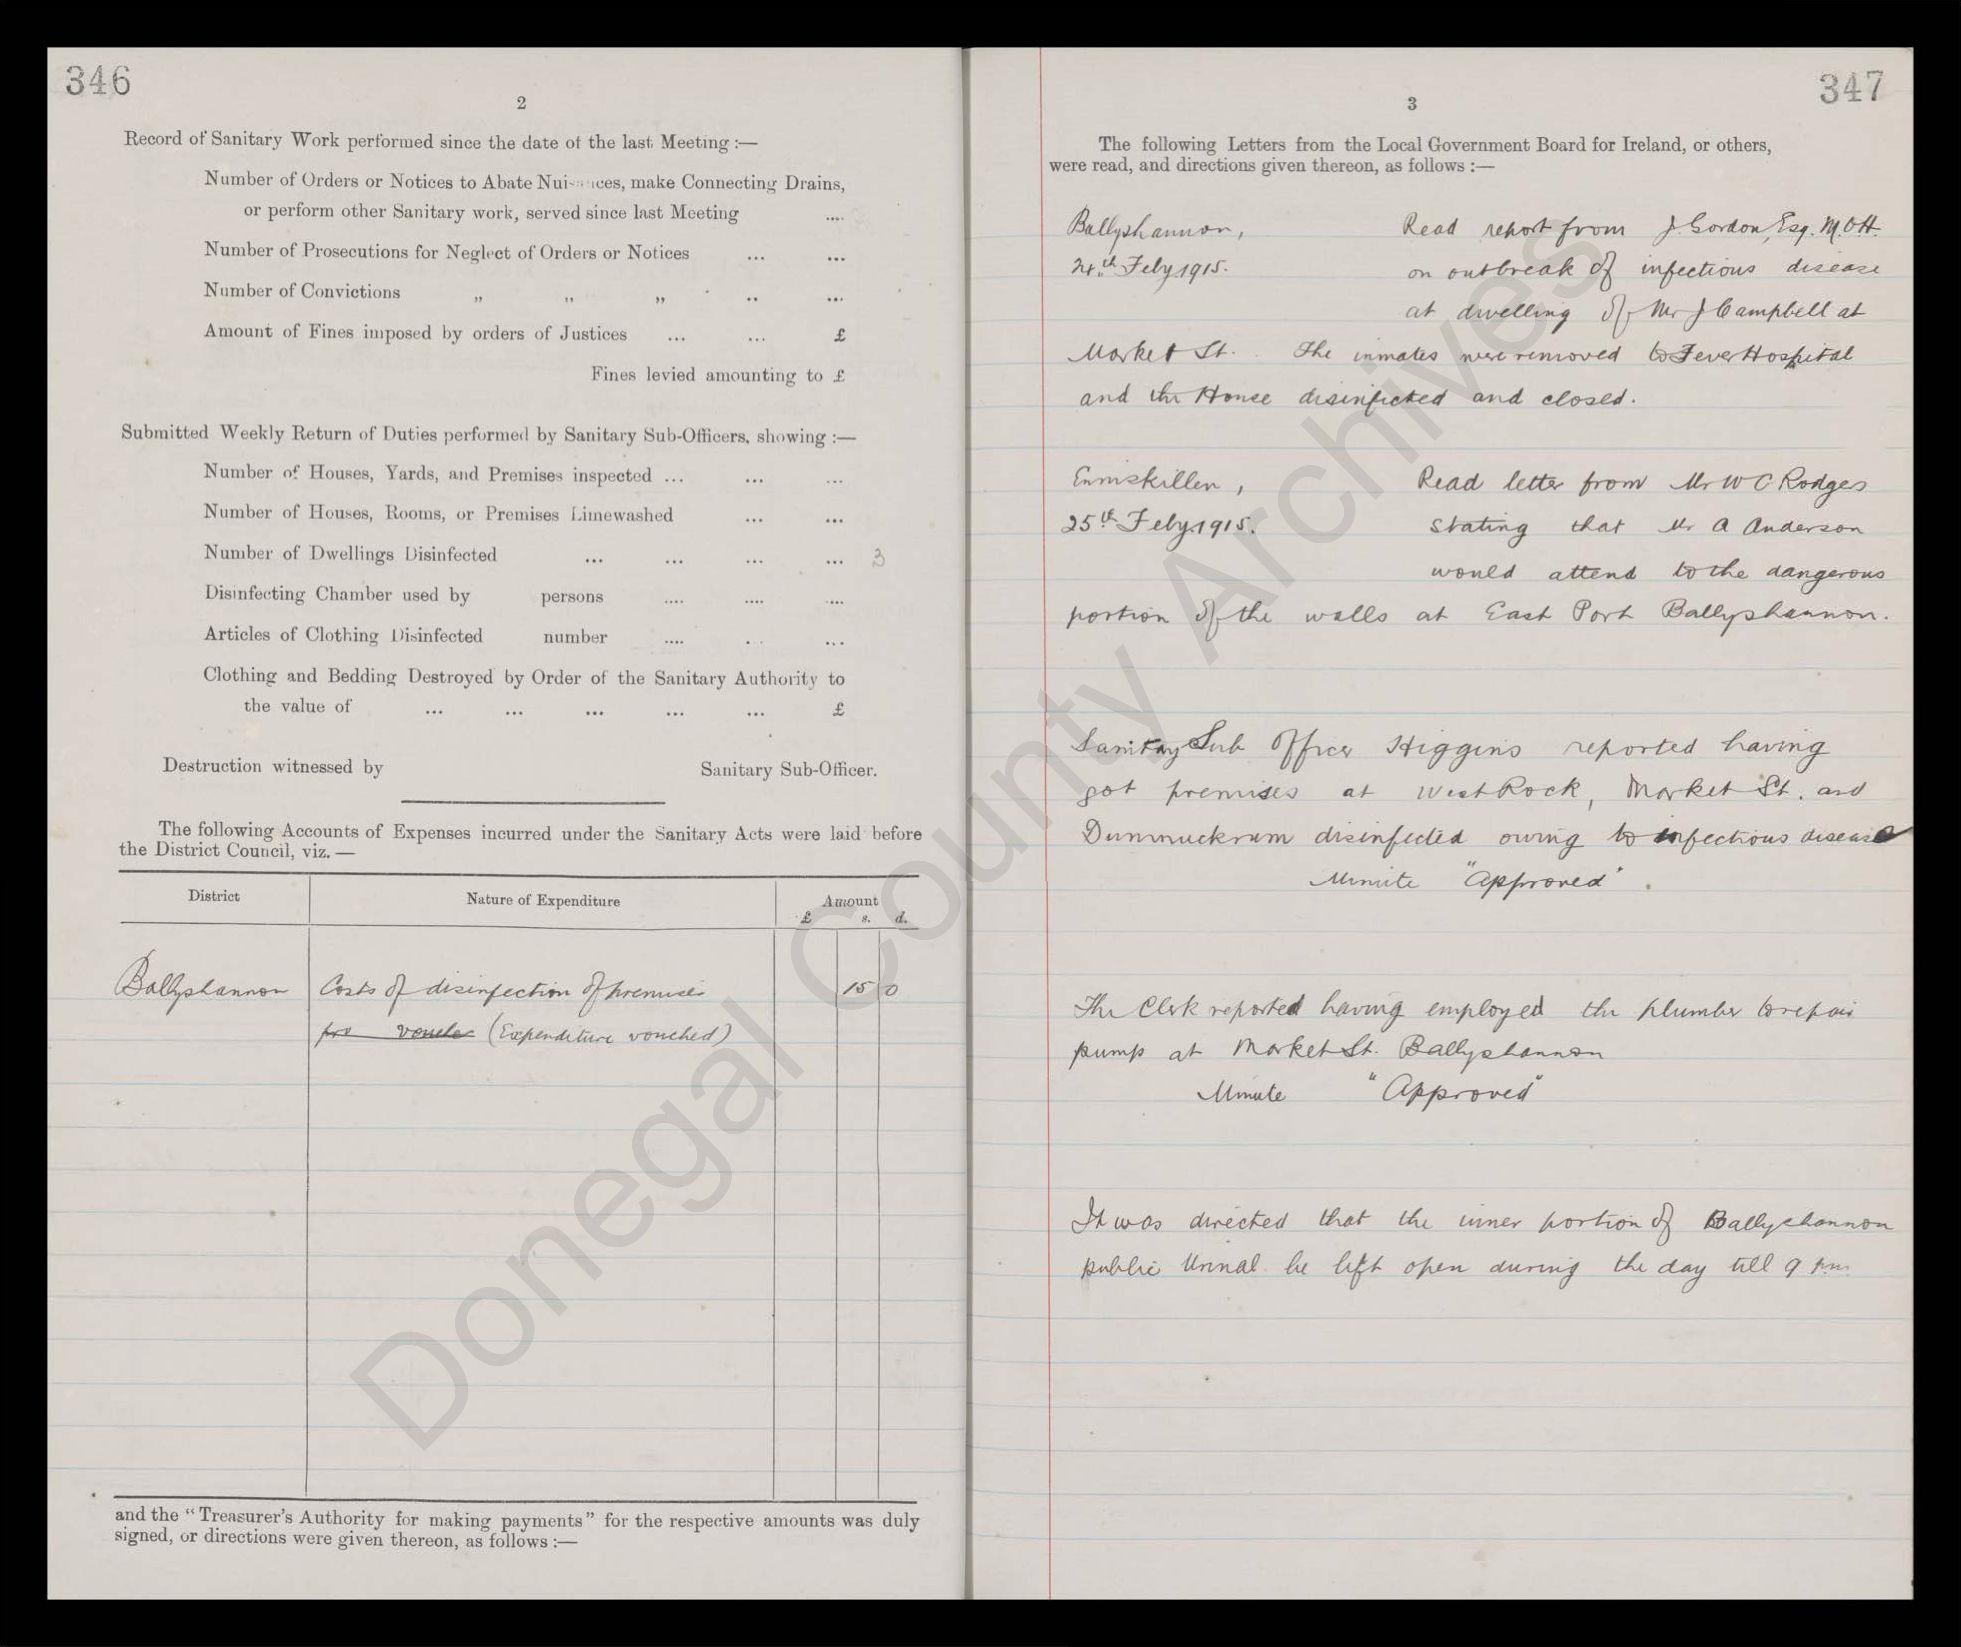 346
2
Record of Sanitary Work performed since the date of the last Meeting :—
Number of Orders or Notices to Abate Nuisances, make Connecting Drains,
or perform other Sanitary work, served since last Meeting ....
Number of Prosecutions for Neglect of Orders or Notices ... ...
Number of Convictions „ „ „ .. ...
Amount of Fines imposed by orders of Justices ... ... £
Fines levied amounting to £
Submitted Weekly Return of Duties performed by Sanitary Sub-Officers, showing :—
Number of Houses, Yards, and Premises inspected ... ... ...
Number of Houses, Rooms, or Premises Limewashed ... ...
Number of Dwellings Disinfected ... ... ... ... 3
Disinfecting Chamber used by persons .... .... ....
Articles of Clothing Disinfected number .... .. ...
Clothing and Bedding Destroyed by Order of the Sanitary Authority to
the value of ... ... ... ... ... £
Destruction witnessed by Sanitary Sub-Officer.
The following Accounts of Expenses incurred under the Sanitary Acts were laid before
the District Council, viz. —
District Nature of Expenditure Amount
£ s. d.
Ballyshannon Costs of disinfection of premises 15 0
(Expenditure vouched)
and the "Treasurer's Authority for making payments" for the respective amounts was duly
signed, or directions were given thereon, as follows :—
347
3
The following Letters from the Local Government Board for Ireland, or others,
were read, and directions given thereon, as follows :—
Ballyshannon, Read report from J. Gordon, Esq. M.O.H.
24th Feby 1915. on outbreak of infectious disease
at dwelling of Mr J Campbell at
Market St. The inmates were removed to Fever Hospital
and the House disinfected and closed.
Enniskillen, Read letter from Mr W C Rodgers
25th Feby. 1915. stating that Mr A Anderson
would attend to the dangerous
portion of the walls at East Port Ballyshannon.
Sanitay Sub Officer Higgins reported having
got premises at West Rock, Market St. and
Dunmuckrum disinfected owing to infectious disease
Minute "Approved".
The Clerk reported having employed the plumber to repair
pump at Market St. Ballyshannon
Minute "Approved"
It was directed that the inner portion of Ballyshannon
public Urinal be left open during the day till 9 p.m.
Donegal County Archives